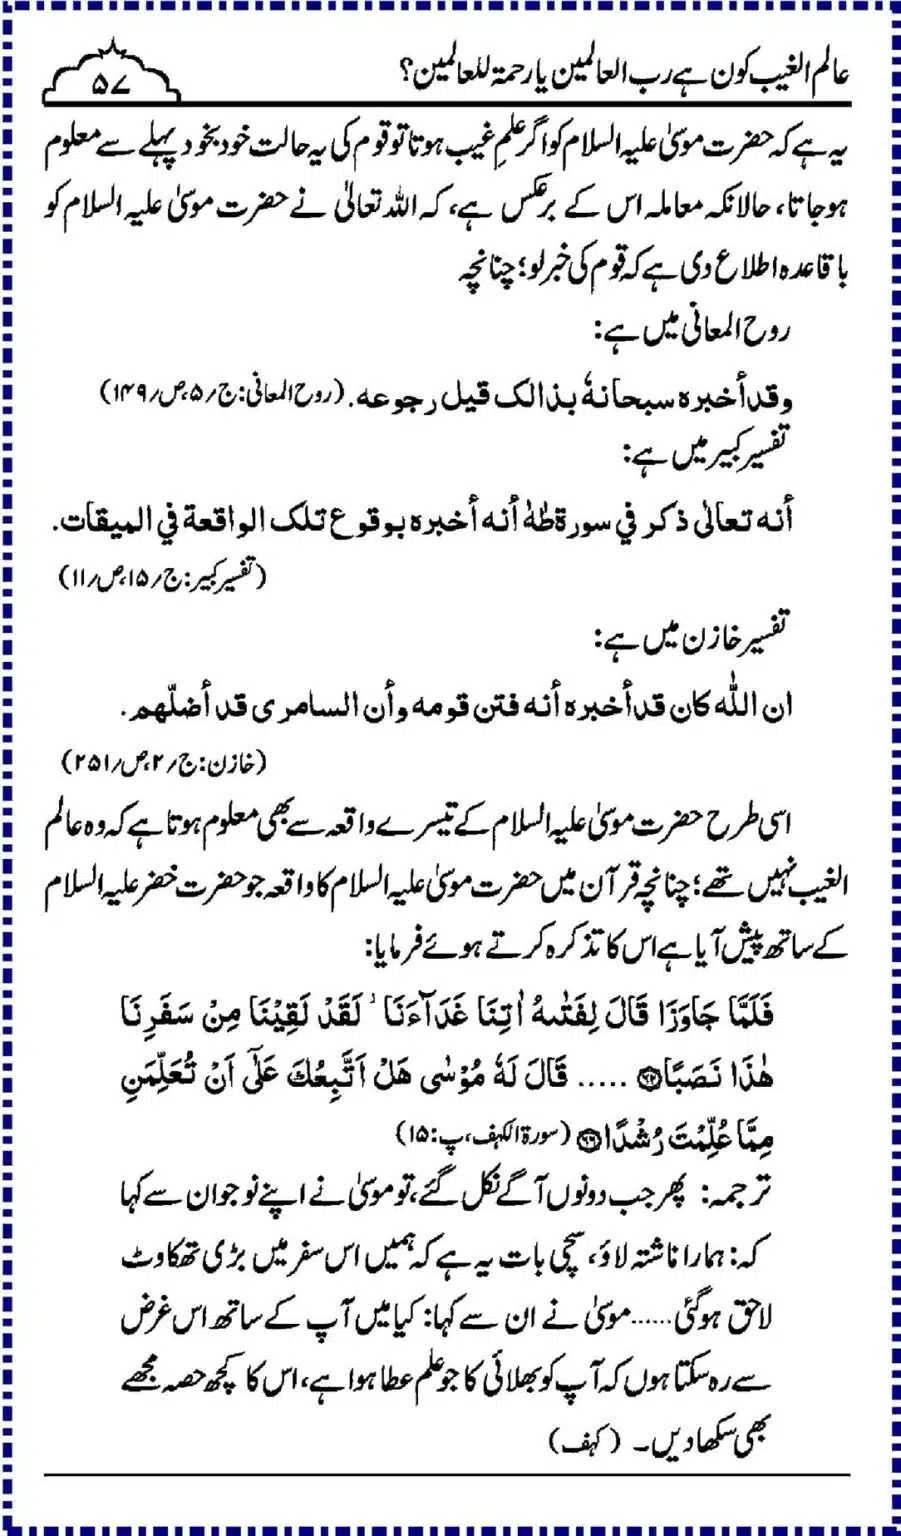 عالم الغیب کون ہے رب العالمین یا رحمۃ للعالمین؟
۵۷
یہ ہے کہ حضرت موسیٰ علیہ السلام کو اگر علمِ غیب ہوتا تو قوم کی یہ حالت خود بخود پہلے سے معلوم
ہوجاتا، حالانکہ معاملہ اس کے برعکس ہے، کہ اللہ تعالیٰ نے حضرت موسیٰ علیہ السلام کو
باقاعدہ اطلاع دی ہے کہ قوم کی خبر لو؛ چنانچہ
روح المعانی میں ہے:
وقد أخبرہ سبحانہٗ بذالک قیل رجوعہ. (روح المعانی: ج؍۵، ص؍۱۴۹)
تفسیر کبیر میں ہے:
أنه تعالیٰ ذکر في سورة طٰهٰ أنه أخبره بوقوع تلک الواقعة في المیقات.
(تفسیر کبیر: ج؍۱۵، ص؍۱۱)
تفسیر خازن میں ہے:
ان اللّٰه کان قد أخبره أنه فتن قومه وأن السامری قد أضلّهم.
(خازن: ج؍۲، ص؍۲۵۱)
اسی طرح حضرت موسیٰ علیہ السلام کے تیسرے واقعہ سے بھی معلوم ہوتا ہے کہ وہ عالم
الغیب نہیں تھے؛ چنانچہ قرآن میں حضرت موسیٰ علیہ السلام کا واقعہ جو حضرت خضر علیہ السلام
کے ساتھ پیش آیا ہے اس کا تذکرہ کرتے ہوئے فرمایا:
فَلَمَّا جَاوَزَا قَالَ لِفَتٰىهُ اٰتِنَا غَدَآءَنَا ۡ لَقَدْ لَقِيْنَا مِنْ سَفَرِنَا
هٰذَا نَصَبًا۝۶۲ ..... قَالَ لَهٗ مُوْسٰى هَلْ اَتَّبِعُكَ عَلٰٓى اَنْ تُعَلِّمَنِ
مِمَّا عُلِّمْتَ رُشْدًا۝۶۶ (سورۃ الکہف، پ: ۱۵)
ترجمہ: پھر جب دونوں آگے نکل گئے، تو موسیٰ نے اپنے نوجوان سے کہا
کہ: ہمارا ناشتہ لاؤ، سچی بات یہ ہے کہ ہمیں اس سفر میں بڑی تھکاوٹ
لاحق ہوگئی......موسیٰ نے ان سے کہا: کیا میں آپ کے ساتھ اس غرض
سے رہ سکتا ہوں کہ آپ کو بھلائی کا جو علم عطا ہوا ہے، اس کا کچھ حصہ مجھے
بھی سکھادیں۔ (کہف)